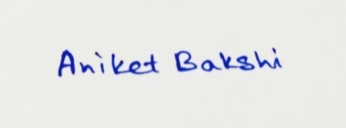 Aniket Bakshi